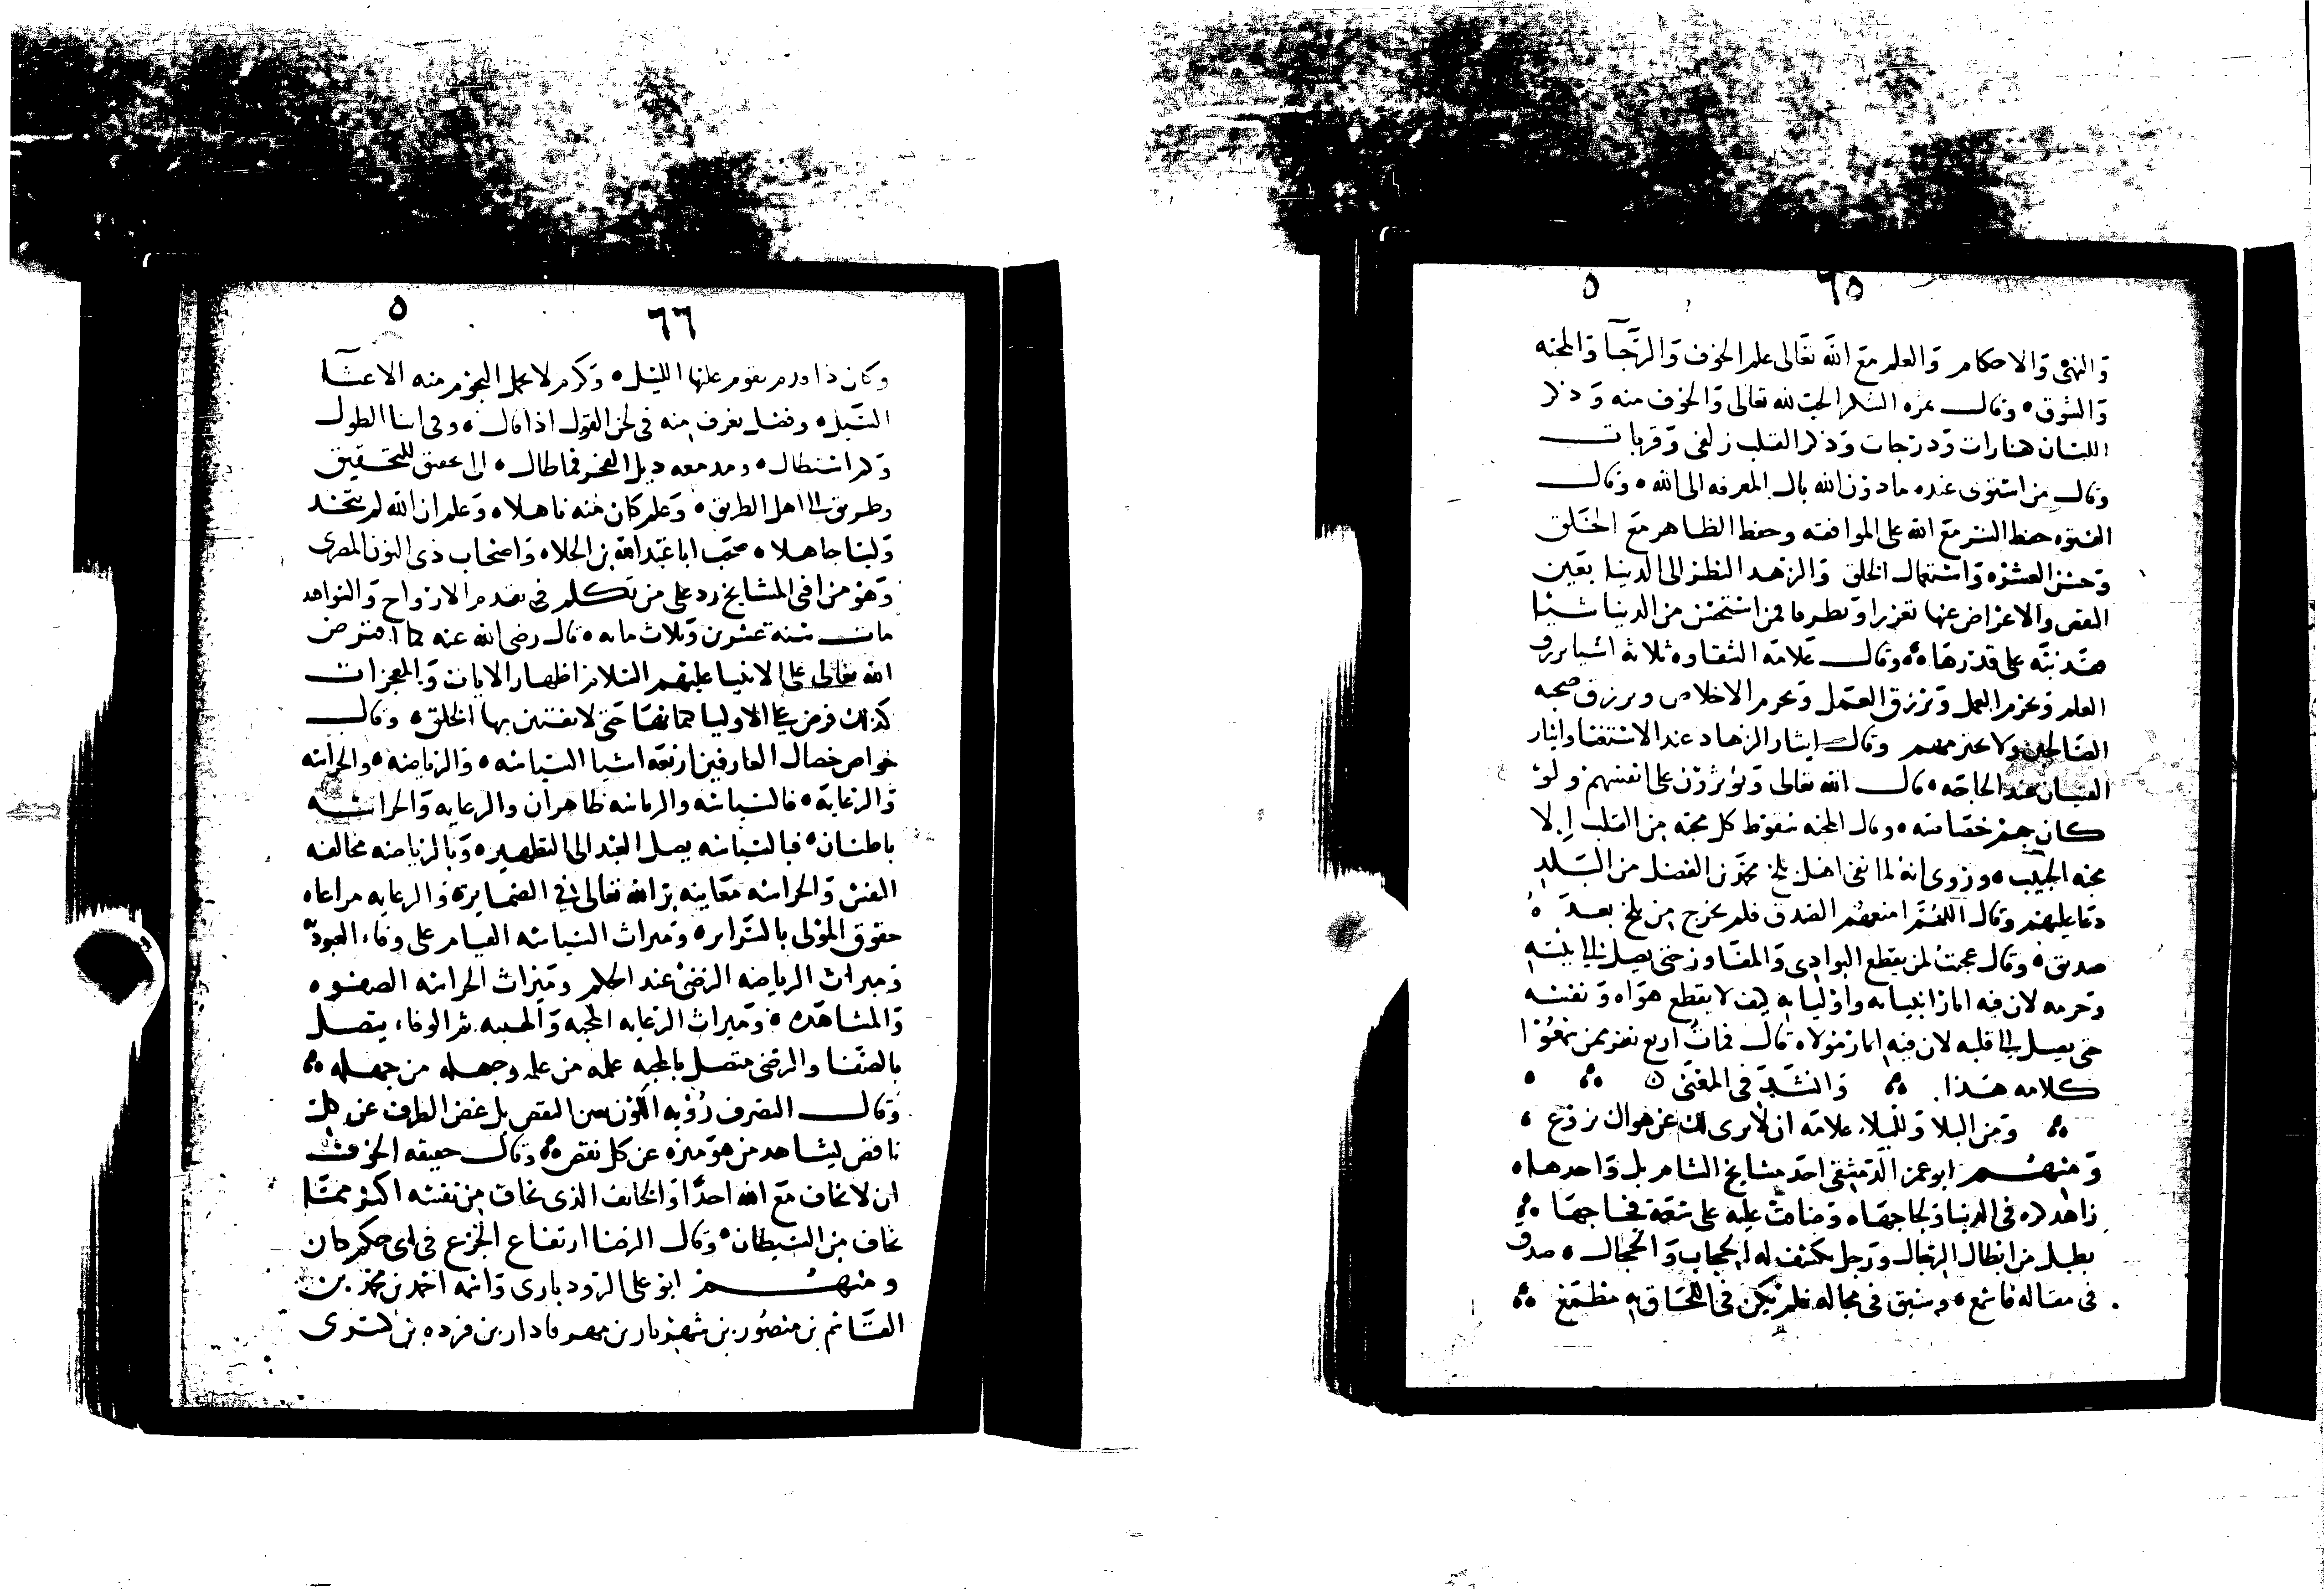 ٦٥ ٥
والنهي والاحكام والعلم مع الله تعالى علم الخوف والرجآ والمحبه
والشوق ه وقال ثمره الشكر الحب لله تعالى والخوف منه وذكر
اللسان كفارات ودرجات وذكر القلب زلفى وقربات
وقال من استوى عنده ما دون الله نال المعرفه الى الله ه وقال
الفتوه حفظ السر مع الله على الموافقه وحفظ الظاهر مع الخلق
وحسن العشره واستعمال الخلق والزهد النظر الى الدنيا بعين
النقص والاعراض عنها تعززا وتظرفا فمن استحسن من الدنيا شيئا
فقد نبه على قدرها ه وقال علامه الشقاوه ثلاثه اشيا يرزق
العلم ويحرم العمل ويرزق العمل ويحرم الاخلاص ويرزق صحبه
الصالحين ولا يحترمهم وقال ايثار الزهاد عند الاستغنا وايثار
الفتيان عند الحاجه ه قال الله تعالى ويؤثرون على انفسهم ولو
كان بهم خصاصه ه وقال المحبه سقوط كل محبه من القلب الا
محبه الحبيب ه وروى انه لما نفى اهل بلخ محمد بن الفضل من البلد
دعا عليهم وقال اللهم امنعهم الصدق فلم يخرج من بلخ بعد ه
صديق ه وقال عجبت لمن يقطع البوادى والمفاوز حتى يصل الى بيته
وحرمه لان فيه اثار انبيائه واوليائه كيف لا يقطع هواه ونفسه
حتى يصل الى قلبه لان فيه اثار مولاه قال فمات اربع نفر ممن سمعوا
كلامه هذا . وانشد فى المعنى
ومن البلا وللبلاء علامه ان لا يرى لك عن هواك نزوع
ومنهم ابو عمر الدمشقى احد مشايخ الشام بل واحدها ه
زاهد ره فى الدنيا ولجاجها ه وضاقت عليه على سعة فجاجها
بطل من ابطال الرجال ورجل يكشف له الحجاب والحجال ه صدق
فى مقاله فاسمع ه وسبق فى مجاله فلم يكن فى اللحاق به مطمع
٦٦ ٥
وكان ذا ورد يقوم عليها الليل ه وكرم لا يحمل النجوم منه الا عشا
السبل ه وفضل يعرف منه فى لحن القول اذا قال ه وفى اسنا الطول
وكرا استطال ه ومد معه ذيل الفخر فما طال ه الى عمق للتحقيق
وطريق الى اهل الطريق ه وعلم كان منه ناهلا ه وعلم ان الله لم يتخذ
وليا جاهلا ه صحب ابا عبد الله بن الجلا ه واصحاب ذى النون المصرى
وهو من افتى المشايخ رد على من تكلم فى تقدم الارواح والشواهد
مات سنة عشرين وثلاث مايه ه قال رضى الله عنه كما افترض
الله تعالى على الانبيا عليهم السلام اظهار الايات والمعجزات
كذلك فرض على الاوليا كتمانها حتى لا يفتتن بها الخلق ه وقال
خواص خصال العارفين اربعه اشيا السياسه ه والرياضه ه والحراسه
والرعاية ه فالسياسه والرياضه ظاهران والرعايه والحراسه
باطنان ه فبالسياسه يصل العبد الى التطهير ه وبالرياضه مخالفه
النفس والحراسه معاينه بر الله تعالى في الضماير ه والرعايه مراعاه
حقوق المولى بالسراير ه وميراث السياسه القيام على وفاء العبوديه
وميراث الرياضه الرضى عند الحكم وميراث الحراسه الصفوه
والمشاهده ه وميراث الرعايه المحبه والهيبه ثم الوفاء يتصل
بالصفا والرضى متصل بالمحبه علمه من علمه وجهله من جهله
وقال التصوف رؤيه الكون بعين النقص بل غض الطرف عن كل
ناقص ليشاهد من هو منزه عن كل نقص ه وقال حقيقه الخوف
ان لا تخاف مع الله احدا والخائف الذى يخاف من نفسه اكثر مما
يخاف من الشيطان ه وقال الرضا ارتفاع الجزع فى اى حكم كان
ومنهم ابو على الروذبارى واسمه احمد بن محمد بن
القاسم بن منصور بن شهريار بن مهرفاذار بن فرغده بن كسرى